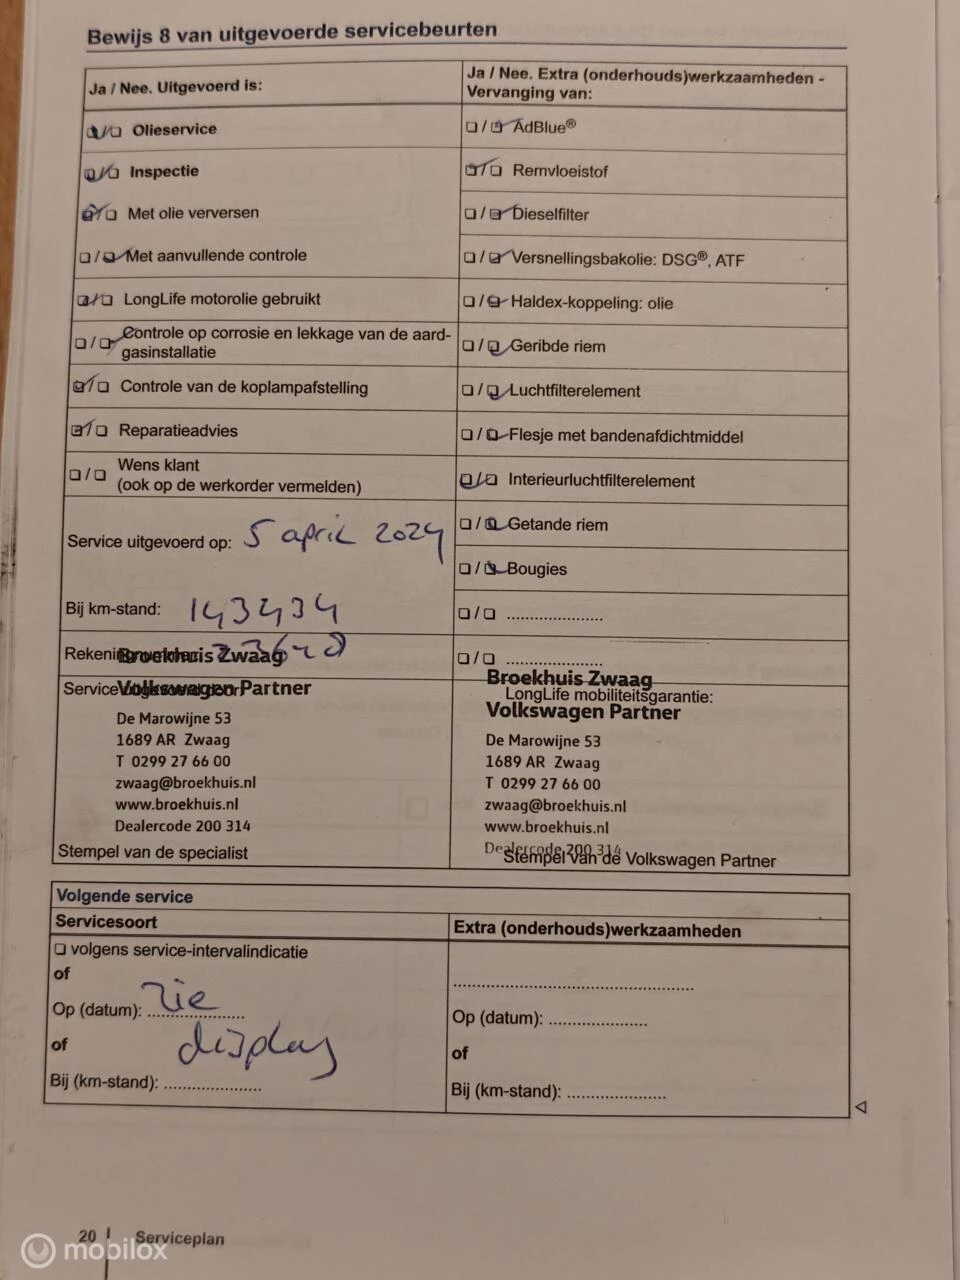 Bewijs 8 van uitgevoerde servicebeurten
Ja / Nee. Uitgevoerd is:
Olieservice
Inspectie
Met olie verversen
Met aanvullende controle
LongLife motorolie gebruikt
Controle op corrosie en lekkage van de aard-
gasinstallatie
Controle van de koplampafstelling
Reparatieadvies
Wens klant
(ook op de werkorder vermelden)
Service uitgevoerd op: 5 april 2024
Bij km-stand: 143434
Broekhuis Zwaag
Volkswagen Partner
De Marowijne 53
1689 AR Zwaag
T 0299 27 66 00
zwaag@broekhuis.nl
www.broekhuis.nl
Dealercode 200 314
Stempel van de specialist
Ja / Nee. Extra (onderhouds)werkzaamheden -
Vervanging van:
AdBlue®
Remvloeistof
Dieselfilter
Versnellingsbakolie: DSG®, ATF
Haldex-koppeling: olie
Geribde riem
Luchtfilterelement
Flesje met bandenafdichtmiddel
Interieurluchtfilterelement
Getande riem
Bougies
Broekhuis Zwaag
LongLife mobiliteitsgarantie:
Volkswagen Partner
De Marowijne 53
1689 AR Zwaag
T 0299 27 66 00
zwaag@broekhuis.nl
www.broekhuis.nl
Dealercode 200 314
Stempel van de Volkswagen Partner
Volgende service
Servicesoort
volgens service-intervalindicatie
of
Op (datum): zie
of display
Bij (km-stand):
Extra (onderhouds)werkzaamheden
Op (datum):
of
Bij (km-stand):
20 Serviceplan
mobilox